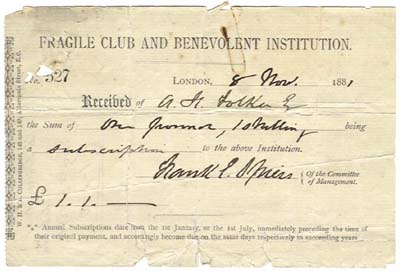 FRAGILE CLUB AND BENEVOLENT INSTITUTION.
No. 527
LONDON, 8 Nov. 1881
Received of A. H.
the Sum of One Pound, 1 Shilling being
a subscription to the above Institution.
Frank E. Of the Committee
of Management.
£ 1. 1. —
"*" Annual Subscriptions date from the 1st January, or the 1st July, immediately preceding the time of
their original payment, and accordingly become due on the same days respectively in succeeding years